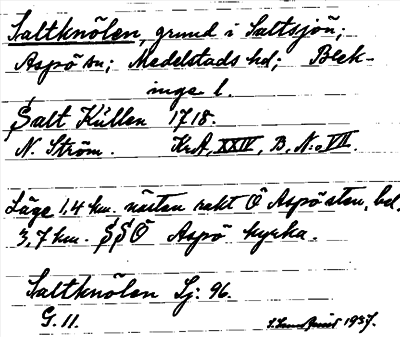 Saltknölen, grund i Saltsjön;
Aspö sn; Medelstads hd; Blek-
inge l.
Salt Küllen 1718.
N. Ström. KrA, XXIV, B, N:o VII.
Läge 1,4 km. nästan rakt Ö Aspösten, bel.
3,7 km. SSÖ Aspö kyrka.
Saltknölen Sj: 96.
G. 11. 1937.